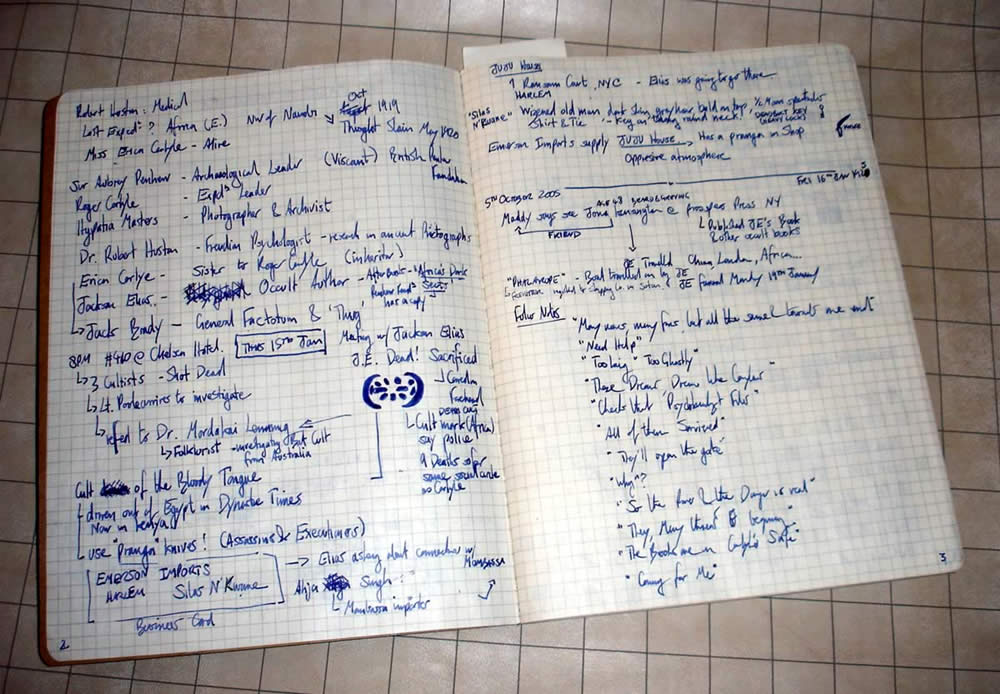 Robert Huston: Medical
Last Exped? Africa (E.) NW of Nairobi Oct 1919
Thought Slain May 1920
Miss Erica Carlyle - Alive
Sir Aubrey Penhew - Archaeological Leader (Viscount) British Penhew Foundation
Roger Carlyle - Leader
Hypatia Masters - Photographer & Archivist
Dr. Robert Huston - Freudian Psychologist - research in ancient Pictographs
Erica Carlye - Sister to Roger Carlyle (inheritor)
Jackson Elias - Occult Author - After Books - "Africa's Dark Sects"
has a copy
Jack Brady - General Factotum & 'Thug'
8PM #410 @ Chelsea Hotel. Thurs 15TH Jan Meeting w/ Jackson Elias
J.E. Dead! Sacrificed
3 Cultists - Shot Dead
Lt. to investigate
refered to Dr. Mordakai
Folklorist - investigating Bat Cult
from Australia
Carved in
Forehead
Cult mark (Africa)
say police
9 Deaths so far
some
no Carlyle
Cult of the Bloody Tongue
driven out of Egypt in Dynastic Times
Now in Kenya
use "Pranga" knives! (Assassins & Executioners)
EMERSON IMPORTS
HARLEM Silas N'Kwane
Business Card
Elias asking about connection w/ MOMBASSA
Ahja Singh
Mombassa importer
2
JUJU House
1 Ransom Court, NYC - Elias was going to go there
HARLEM
"Silas N'Kwane" Wizened old man, dark skin, grey hair, bald on top, 1/2 Moon spectacles
Shirt & Tie - Key on thong round neck!
Emerson Imports supply JUJU HOUSE Has a pranga in Shop
Oppresive atmosphere
FRI 16TH JAN
5TH October 2005
AGE 48
Maddy says see Jona Kensington @ Prospero Press NY
FRIEND
Published JE's Book
& other occult books
JE Travelled China, London, Africa...
- Boat travelled on by JE
JE Found Monday 19TH January
Folio Notes
"Many names, many forms but all the same & towards one end"
"Need Help"
"Too big" "Too Ghostly"
"These Dreams Dreams like Carlyle's"
"Check that Psychoanalyst Files"
"All of them Survived"
"They'll open the gate"
"Why"?
"So the Power & the Danger is real"
"They, Many threads beginning"
"The Books are in Carlyle's Safe"
"Coming for Me"
3